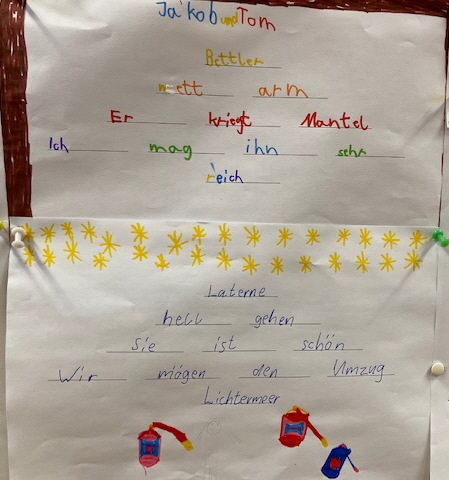 Jakob und Tom
Bettler
nett arm
Er kriegt Mantel
Ich mag ihn sehr
reich
Laterne
hell gehen
Sie ist schön
Wir mögen den Umzug
Lichtermeer